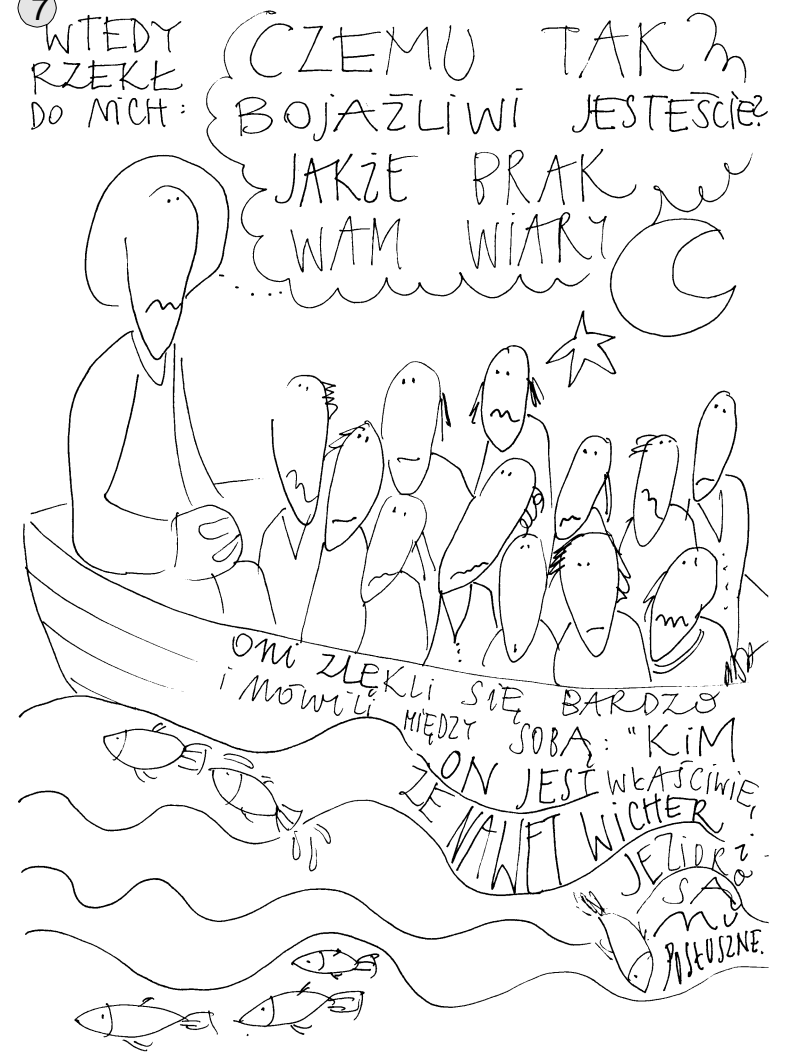 7
WTEDY
RZEKŁ
DO NICH:
CZEMU TAK
BOJAŹLIWI JESTEŚCIE?
JAKŻE BRAK
WAM WIARY
ONI ZLĘKLI SIĘ BARDZO
I MÓWILI MIĘDZY SOBĄ: "KIM
ON JEST WŁAŚCIWIE,
ŻE NAWET WICHER
I JEZIORO
SĄ
MU
POSŁUSZNE.